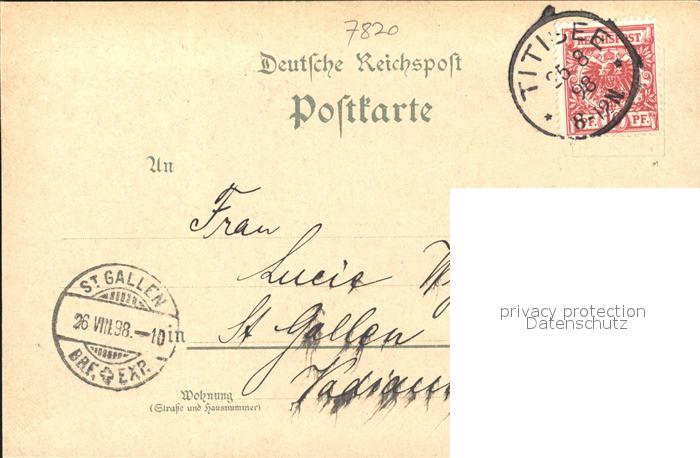 7820
Deutsche Reichspost
Postkarte
TITISEE
25 8
98
8-9N
REICHSPOST
PF. 10 PF.
An
Frau
Lucie
St Gallen
ST. GALLEN
26 VIII.98.–10
BRF. EXP.
in
Wohnung
(Straße und Hausnummer)
privacy protection
Datenschutz